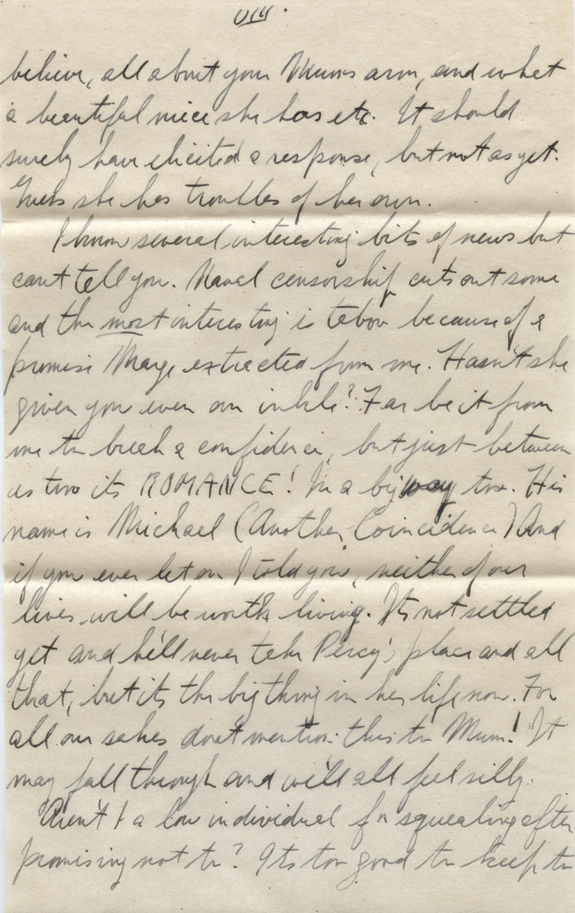 VIII.
believe, all about your Mum's arm, and what
a beautiful niece she has etc. It should
surely have elicited a response, but not as yet.
Guess she has troubles of her own.
I know several interesting bits of news but
can't tell you. Naval censorship cuts out some
and the most interesting is taboo because of a
promise Marge extracted from me. Hasn't she
given you even an inkle? Far be it from
me to break a confidence, but just between
us two its ROMANCE! In a big way too. His
name is Michael (Another Coincidence) And
if you ever let on I told you, neither of our
lives will be worth living. Its not settled
yet and he'll never take Percy's place and all
that, but its the big thing in her life now. For
all our sakes don't mention this to Mum! It
may fall through and we'll all feel silly.
Aren't I a low individual for squealing after
promising not to? Its too good to keep to